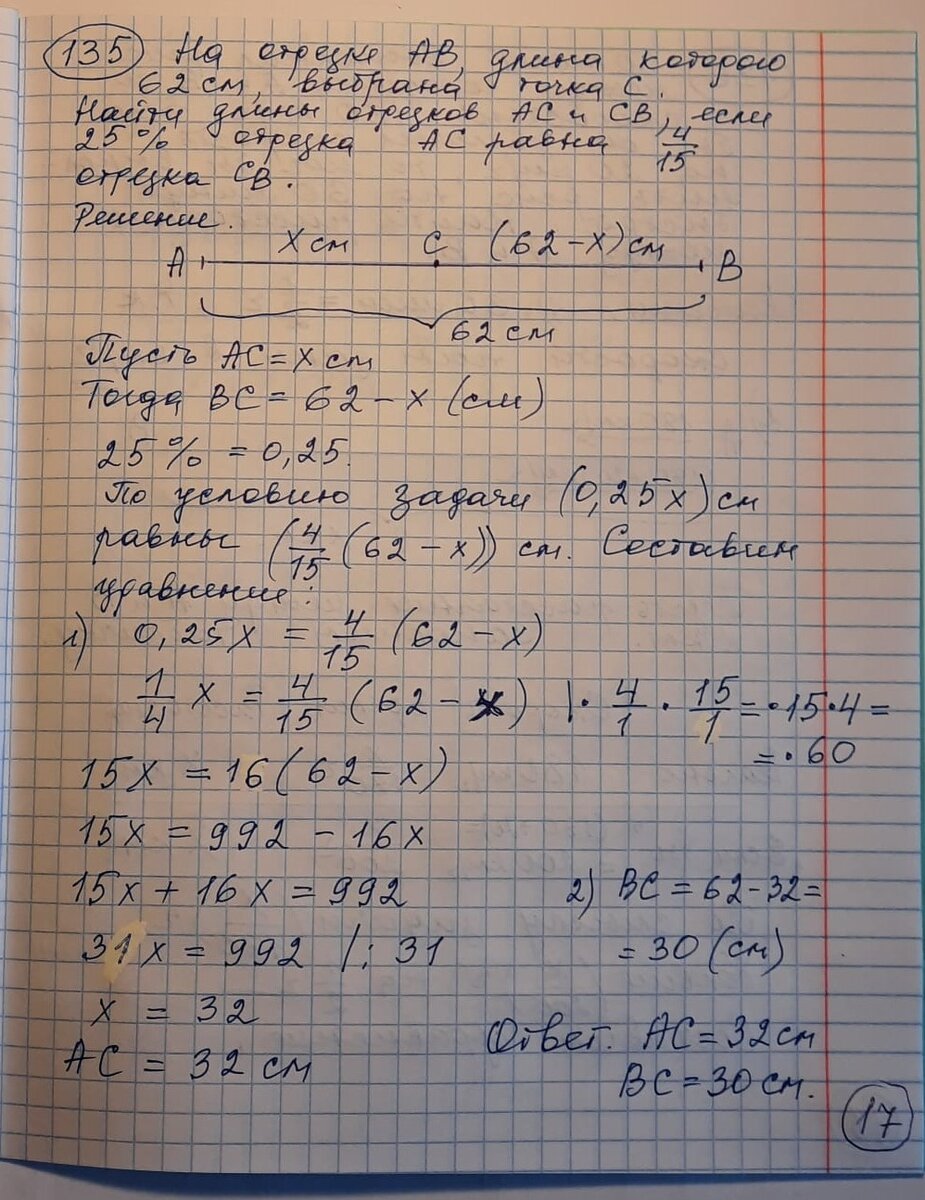 135 На отрезке АВ, длина которого
62 см, выбрана точка С.
Найти длины отрезков АС и СВ, если
25% отрезка АС равна 4/15
отрезка СВ.
Решение.
А х см С (62-х) см В
62 см
Пусть АС = х см
Тогда ВС = 62 - х (см)
25% = 0,25.
По условию задачи (0,25х) см
равны (4/15 (62 - х)) см. Составим
уравнение:
1) 0,25х = 4/15 (62 - х)
1/4 х = 4/15 (62 - х) | · 4/1 · 15/1 = ·15·4 =
= ·60
15х = 16(62 - х)
15х = 992 - 16х
15х + 16х = 992
31х = 992 |: 31
х = 32
АС = 32 см
2) ВС = 62 - 32 =
= 30 (см)
Ответ. АС = 32 см
ВС = 30 см.
17